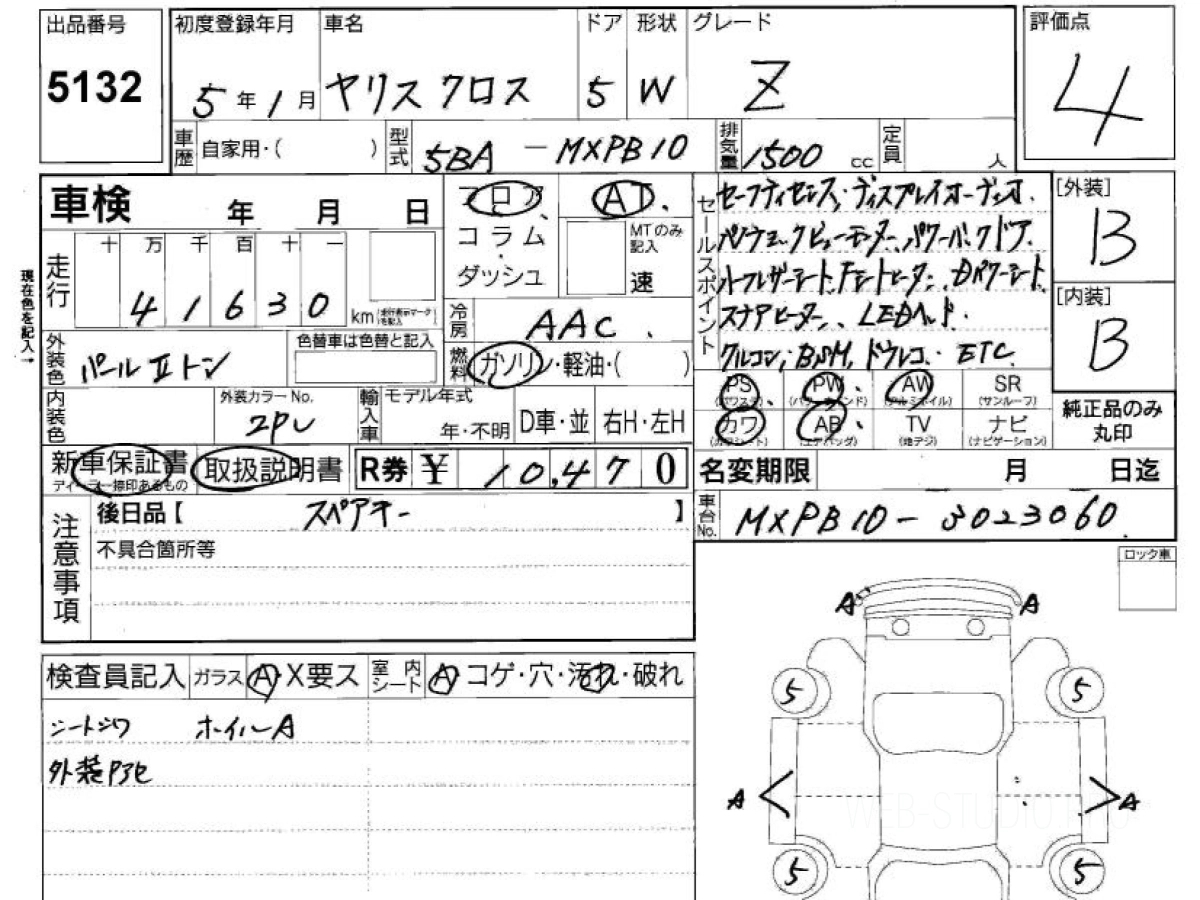 出品番号
5132
初度登録年月
5年1月
車名
ヤリス クロス
ドア
5
形状
W
グレード
Z
評価点
4
車歴 自家用・( )
型式 5BA - MXPB10
排気量 1500 cc
定員 人
車検 年 月 日
フロア
コラム
ダッシュ
AT
MTのみ記入
速
現在色を記入→
走行
十 万 千 百 十 一
41630 km
冷房 AAC
燃料 ガソリン・軽油・( )
外装色 パールⅡトン
色替車は色替と記入
内装色
外装カラーNo.
2PU
輸入車
モデル年式
年・不明
D車・並
右H・左H
新車保証書
ディーラー捺印あるもの
取扱説明書
R券 ¥ 10,470
セールスポイント
セーフティセンス、ディスプレイオーディオ、
パノラミックビューモニター、パワーバックドア、
ハーフレザーシート、Fシートヒーター、Dパワーシート
ステアヒーター、LEDヘッド、
クルコン、BSM、ドラレコ、ETC
[外装]
B
[内装]
B
PS
(パワステ)
PW
(パワーウィンド)
AW
(アルミホイル)
SR
(サンルーフ)
カワ
(カワシート)
AB
(エアバッグ)
TV
(地デジ)
ナビ
(ナビゲーション)
純正品のみ
丸印
名変期限 月 日迄
車台No. MXPB10-3023060
注意事項
後日品【 スペアキー 】
不具合箇所等
ロック車
検査員記入
ガラス A X要ス
室内シート A コゲ・穴・汚れ・破れ
シートシワ ホイルA
外装
A A
5 5
A A
5 5
WEB-STUDIO.PRO